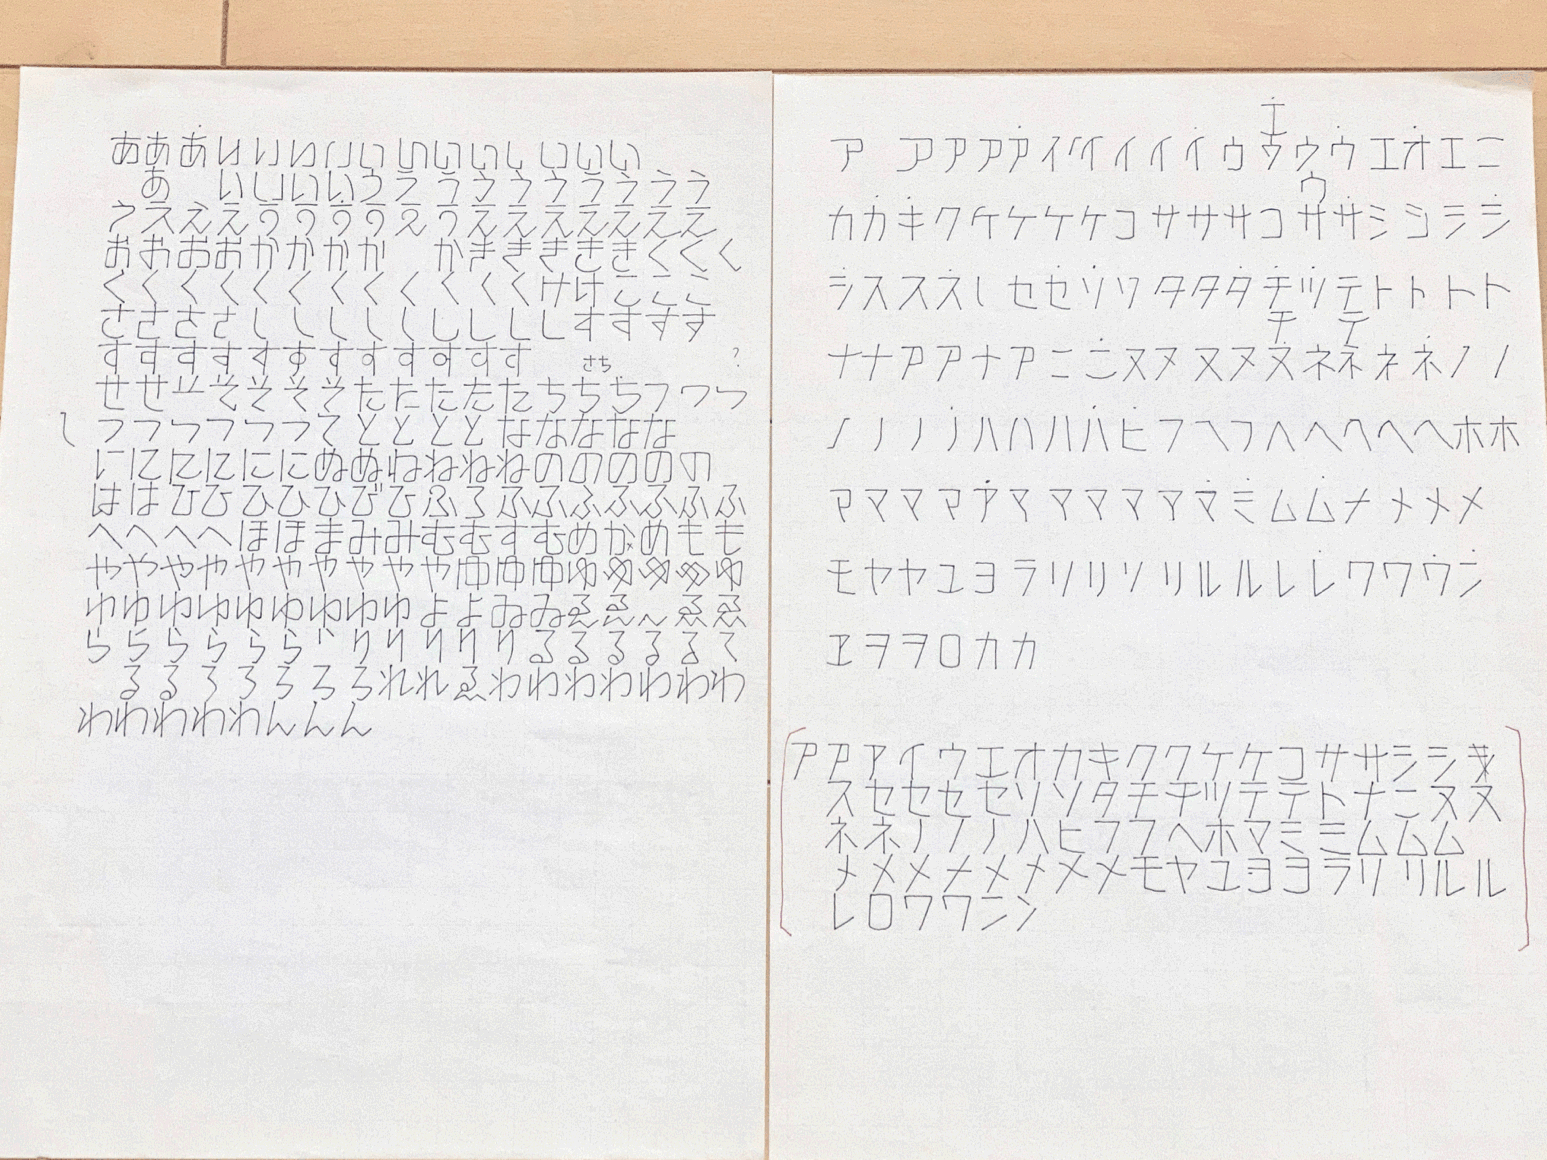 あああいいいいいいいいいいいい
あ いいいいうううううううううう
うええええええええええ
おおおおかかかか かきききききくくく
くくくくくくくくくくくけけここご
ささささししししししししすすすす
すすすすすすすすすすすす さち ?
せせそそそそたたたたたちちぢつつつ
つつつつつつてとととななななな
にににににぬぬねねねねののののの
ははひひひひびひふふふふふふふふ
へへへへほほまみみむむすむめかめもも
ややややややややややゆゆゆゆゆゆゆゆ
ゆゆゆゆゆゆゆゆゆよよゐゐゑゑんゑゑ
らららららりりりりりるるるるるて
るるろろろろろれれゑわわわわわわわ
わわわわわんんん
エ
ア アアアアイイイイイイウウウウエオエニ
ウ
カカキクケケケケコササササコササミシシシ
シススス セセソソタタタチツテトトトト
チ テ
ナナアアナアニニヌヌヌヌヌネネネネノノ
ノノノノハハハハヒフヘフヘヘヘヘヘホホ
ママママママママママミムムメメメメ
モヤヤユヨラリリソリルルレレワワウン
ヱヲヲロカカ
アアアイウエオカキククケケコササシシ
スセセセセソソタチチツテテトナニヌヌ
ネネノノノハヒフフヘホマミミムムム
メメメメメメメメモヤユヨヨラリリルル
レロワワニン